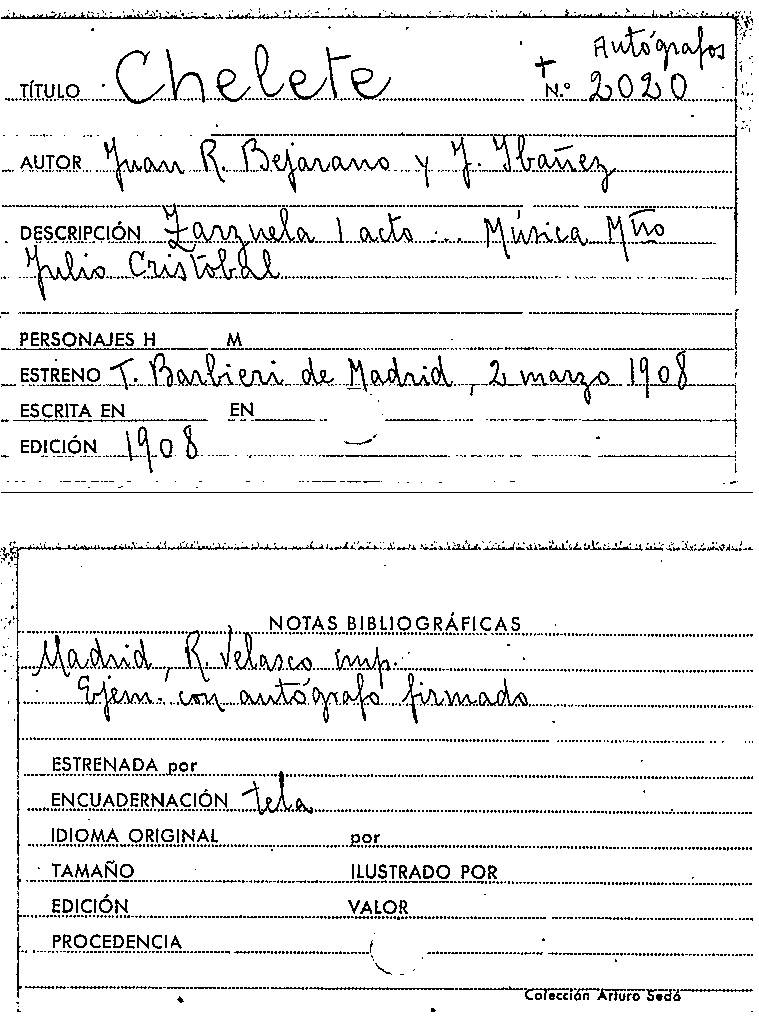 Autógrafos
TÍTULO Chelete + N.º 2020
AUTOR Juan R. Bejarano y J. Ibañez
DESCRIPCIÓN Zarzuela 1 acto ... Música Mtño
Julio Cristobal
PERSONAJES H M
ESTRENO T. Barbieri de Madrid, 2 marzo 1908
ESCRITA EN EN
EDICIÓN 1908
NOTAS BIBLIOGRÁFICAS
Madrid, R. Velasco imp.
Ejem. con autógrafo firmado
ESTRENADA por
ENCUADERNACIÓN tela
IDIOMA ORIGINAL por
TAMAÑO ILUSTRADO POR
EDICIÓN VALOR
PROCEDENCIA
Colección Arturo Sedó